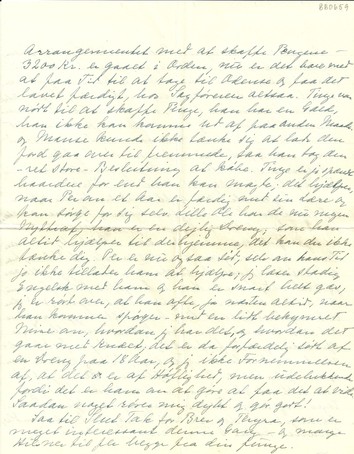 880654
Arrangementet med at skaffe Pengene -
3200 Kr. er gaaet i Orden, nu er det bare med
at faa Tid til at tage til Odense og faa det
lavet færdigt, hos Sagføreren altsaa. Thyge var
nødt til at skaffe Penge, han har en Gæld,
han ikke kan komme ud af paa anden Maade
og Manse kunde ikke tænke sig at lade den
Jord gaa over til fremmede, saa han tog den
Beslutning at købe. Thyge er jo
haardere for end han kan magte; det hjælper,
naar Per om et Aar er færdig med sin Lære og
kan sørge for sig selv. Lille Ole har de nu megen
Nytte af, han er en dejlig Dreng, som han
altid hjælper til derhjemme, det kan du ikke
tænke dig. Per er nu ogsaa sød, selv om hans Tid
jo ikke tillader ham at hjælpe, jeg læser stadig
Engelsk med ham og han er snart helt gas,
jeg er rørt over, at han ofte, jo næsten altid, naar
han kommer spørger - med en lidt bekymret
Mine om, hvordan jeg har det, og hvordan det
gaar med Knæet, det er da forfærdelig sødt af
en Dreng paa 18 Aar, og jeg ikke Fornemmelsen
af, at det er af Høflighed, men udelukkende
fordi det er ham om det at gøre at faa det at vide.
Saadan noget rører mig dybt og gør godt!
Saa til Slut Tak for Brev og, som er
meget interessant denne Gang - og mange
Hilsner til jer begge fra din